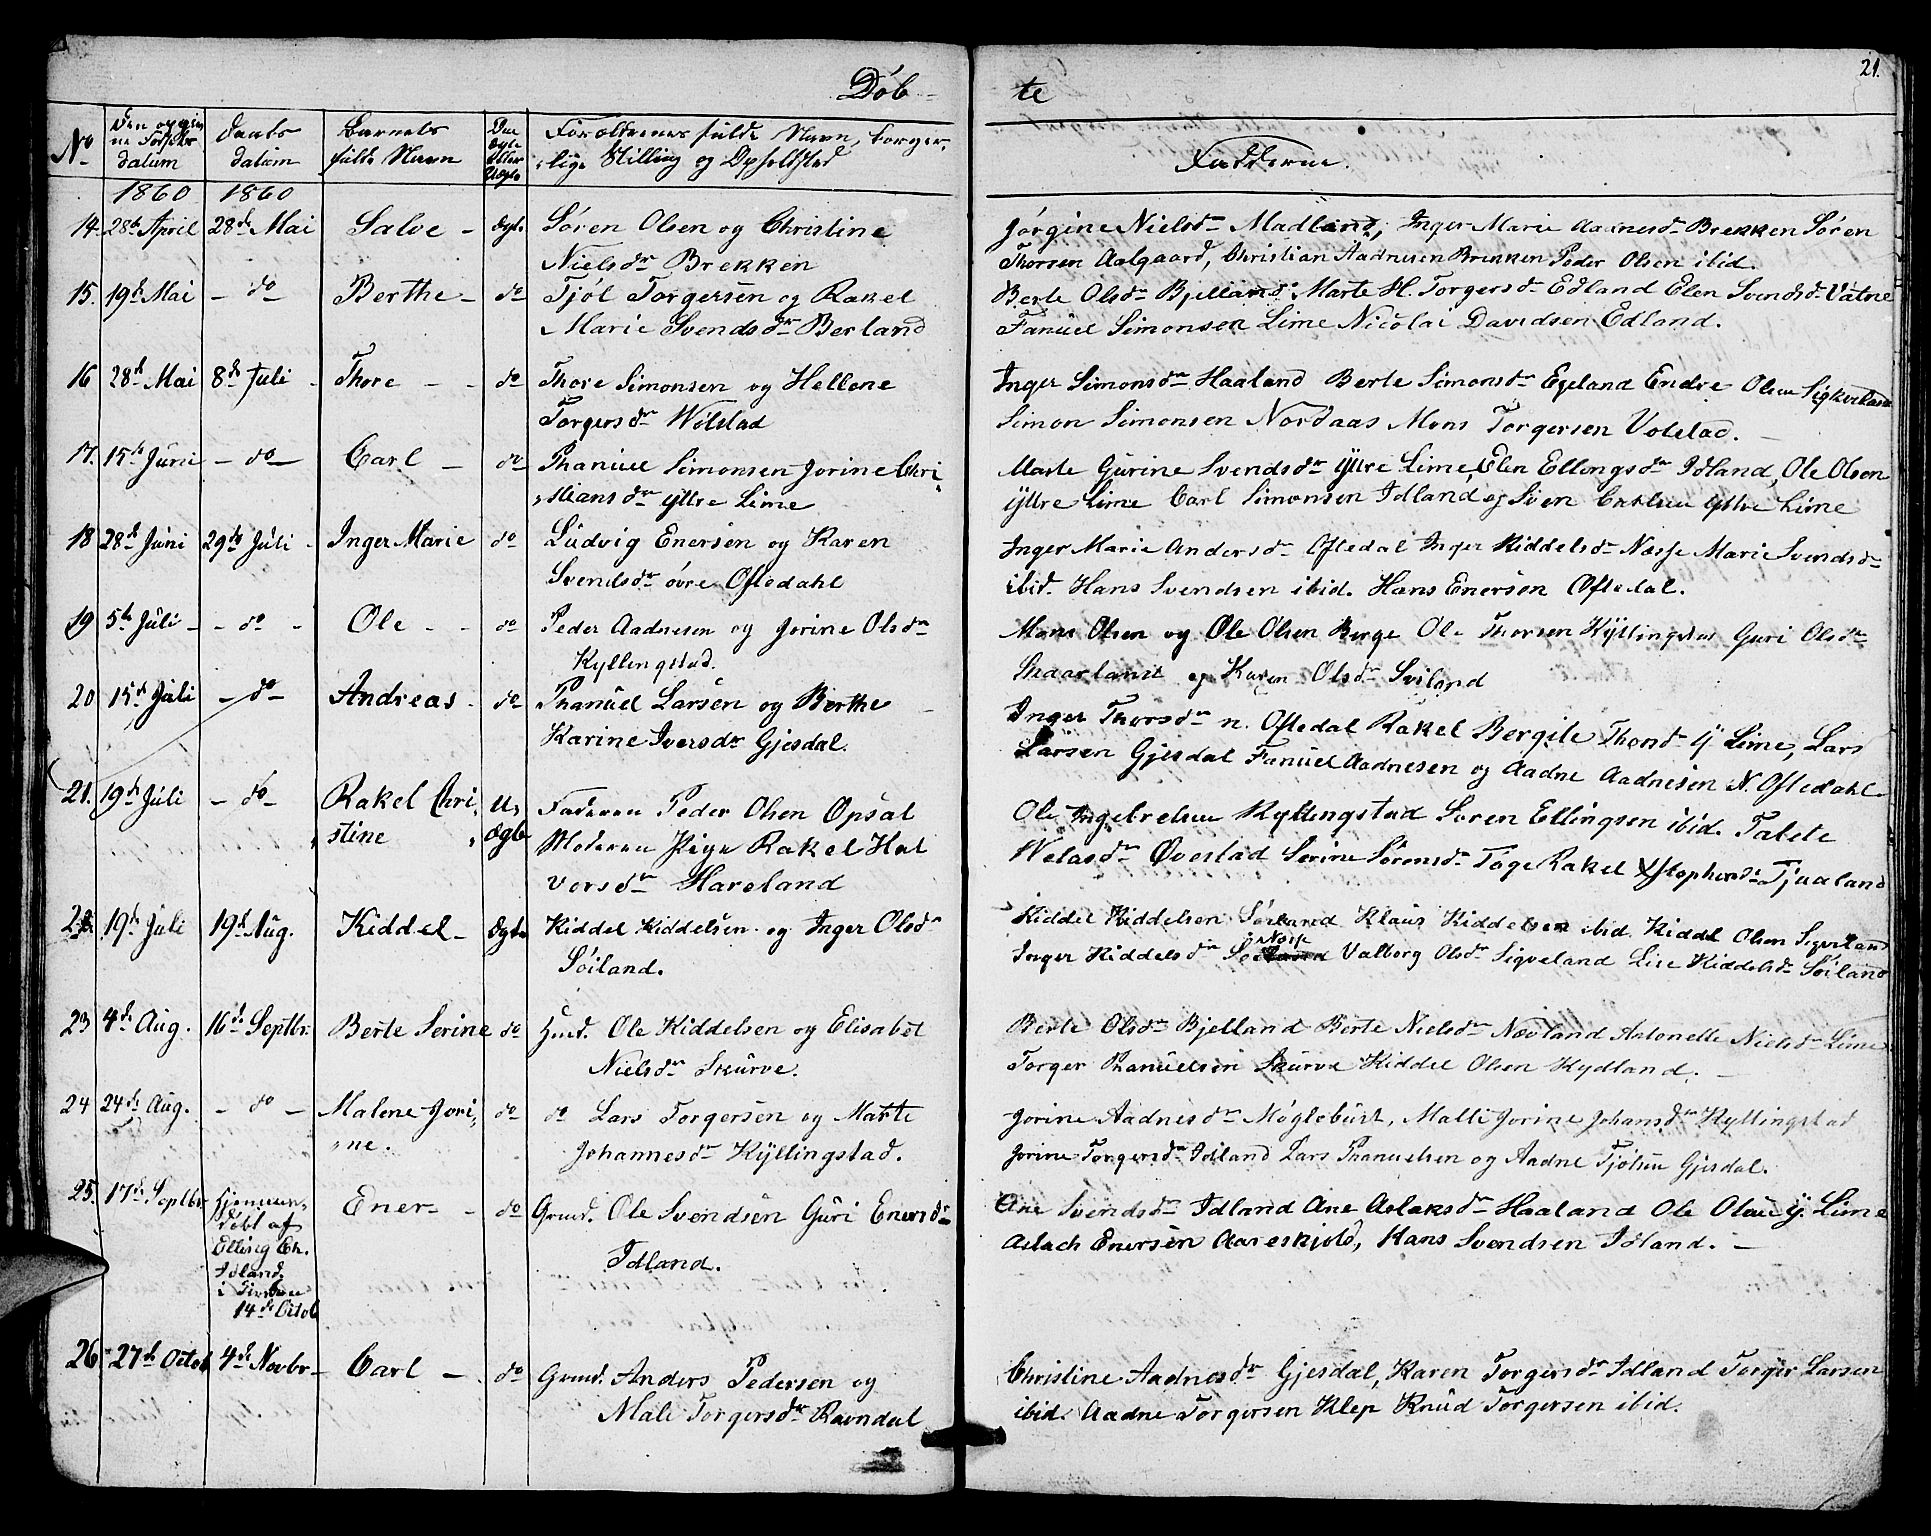 Döb-
te
21.
No
Den opgivne Fødselsdatum
Daabsdatum
Barnets fulde Navn
Om Ægte eller Uægte
Forældrenes fulde Navn, borger-
lige Stilling og Opholdsted
Faddere.
1860 1860
14. 28de April 28de Mai Salve - Ægte Søren Olsen og Christine
Nielsdr Brekken
Jørgine Nielsdr Madland, Inger Marie Aadnesdr Brekken Søren
Thorsen Aalgaard, Christian Aadnesen Brekken Peder Olsen ibid.
15. 19de Mai - do Berthe - do Tjøl Torgersen og Rakel
Marie Svendsdr Berland
Berte Olsdr Bjelland Marte H. Torgersdr Edland Elen Svendsdr Vatne
Fanuel Simonsen Lime Nicolai Davidsen Edland.
16 28de Mai 8de Juli - Thore - - do Thore Simonsen og Hellene
Torgersdr Wølstad
Inger Simonsdr Haaland Berte Simonsdr Egeland Endre Olsen Sigkveland
Simon Simonsen Nordaas Mons Torgersen Volstad. -
17. 15de Juni - do - Carl - do Phanuel Simonsen Jorine Chri-
stiansdr Yttre Lime
Marte Gurine Svendsdr Yttre Lime, Elen Ellingsdr Idland, Ole Olsen
Yttre Lime Carl Simonsen Idland, og Sven Yttre Lime
18 28de Juni 29de Juli - Inger Marie do Ludvig Enersen og Karen
Svendsdr øvre Oftedahl
Inger Marie Andersdr Oftedal Inger Kiddelsdr Næsse Marie Svendsdr
ibid. Hans Svendsen ibid. Hans Enersen Oftedal.
19 5te Juli - - do - Ole - - do Peder Aadnesen og Jorine Olsdr
Kyllingstad.
Mons Olsen og Ole Olsen Berge Ole Thorsen Kyllingstad Guri Olsdr
Skaarland og Karen Olsdr Sviland
20 15de Juli - do - Andreas - do Phanuel Larsen og Berthe
Karine Iversdr Gjesdal.
Inger Thorsdr n. Oftedal Rakel Bergite Thorsdr Y Lime, Lars
Larsen Gjesdal Fanuel Aadnesen og Aadne Aadnesen N. Oftedahl.
21. 19de Juli - do - Rakel Chri-
stine
U-
ægte
Faderen Peder Olsen Opsal
Moderen Pige Rakel Hal
vorsdr Hareland
Ole Ingebretsen Kyllingstad Soren Ellingsen ibid. Tabete
Welasdr Øvestad Serine Sørensdr Tøge Rakel Stephensdr Tjaaland
22. 19de Juli 19de Aug. Kiddel - Ægte Kiddel Kiddelsen og Inger Olsdr
Söiland.
Kiddel Kiddelsen Söiland Klaus Kiddelsen ibid. Kiddel Olsen Sigveland
Inger Kiddelsdr Næsse Valborg Olsdr Sigveland Lise Kiddelsdr Söiland
23 4de Aug. 16de Septbr. Berte Serine do Husd. Ole Kiddelsen og Elisabet
Nielsdr Skurve.
Berte Olsdr Bjelland Berte Nielsdr Nævland Antonette Nielsdr Lime
Torger Phanuelsen Skurve Kiddel Olsen Kydland. -
24 24de Aug. - do - Malene Jori-
ne.
do do Lars Torgersen og Marte
Johannesdr Kyllingstad.
Jorine Aadnesdr Møglebust, Malli Jorine Johansdr Kyllingstad
Jorine Torgersdr Idland Lars Phanuelsen og Aadne Tjølsen Gjesdal.
25. 17de Septbr. Hjemme-
døbt af
Elling Ch.
Idland,
i Kirken
14de Octob
Ener - - do Grmd. Ole Svendsen Guri Enersdr
Idland.
Ane Svendsdr Idland Ane Aslaksdr Haaland Ole Olsen Y. Lime
Aslach Enersen Aareskjold, Hans Svendsen Idland. -
26 27de Octob 4de Novbr - Carl - do Grmd. Anders Pedersen og
Male Torgersdr Ravndal
Christine Aadnesdr Gjesdal, Karen Torgersdr Idland Torger Larsen
ibid. Aadne Torgersen Klep Knud Torgersen ibid.